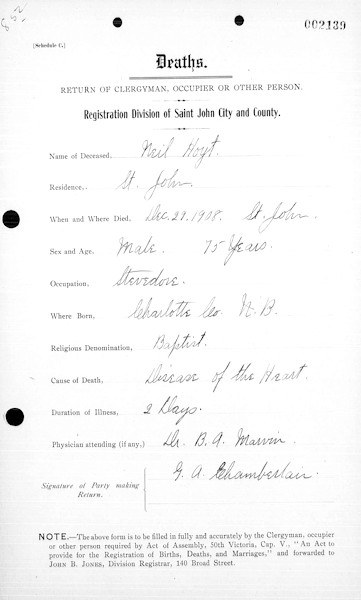 852
002139
[Schedule C.]
Deaths.
RETURN OF CLERGYMAN, OCCUPIER OR OTHER PERSON.
Registration Division of Saint John City and County.
Name of Deceased, Neil Hoyt.
Residence, St. John.
When and Where Died, Dec. 29. 1908. St. John.
Sex and Age, Male. 75 Years.
Occupation, Stevedore.
Where Born, Charlotte Co. N. B.
Religious Denomination, Baptist.
Cause of Death, Disease of the Heart.
Duration of Illness, 2 Days.
Physician attending (if any,) Dr. B. A. Marvin.
G. A. Chamberlain.
Signature of Party making
Return.
NOTE.—The above form is to be filled in fully and accurately by the Clergyman, occupier
or other person required by Act of Assembly, 50th Victoria, Cap. V., "An Act
to provide for the Registration of Births, Deaths, and Marriages," and forwarded to
JOHN B. JONES, Division Registrar, 140 Broad Street.